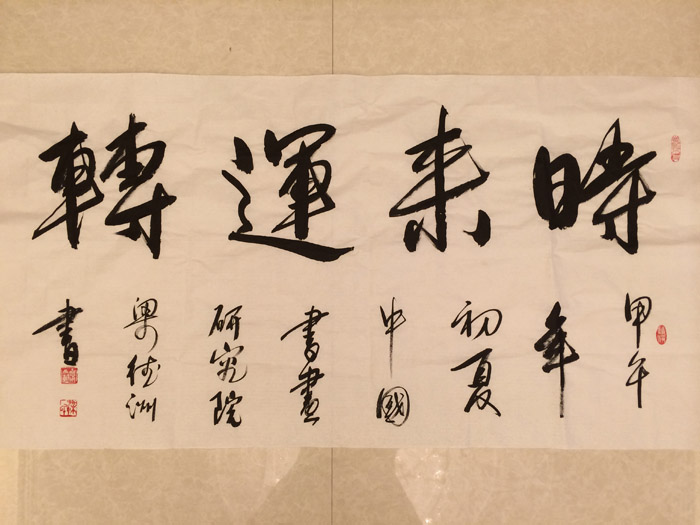 時来運轉
甲午
年
初夏
中國
書畫
研究院
洲
書